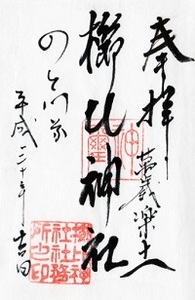 奉拝
萬歳楽土
櫛比神社
の
平成二十年 吉日
櫛比神
社社務
所之印